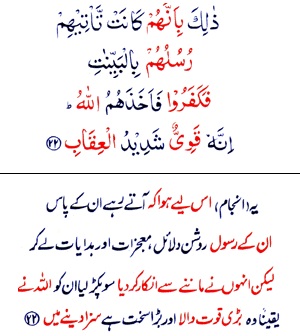 ذٰلِكَ بِاَنَّهُمْ كَانَتْ تَّاْتِيْهِمْ
رُسُلُهُمْ بِالْبَيِّنٰتِ
فَكَفَرُوْا فَاَخَذَهُمُ اللّٰهُ ؕ
اِنَّهٗ قَوِيٌّ شَدِيْدُ الْعِقَابِ ﴿۲۲﴾
یہ (انجام) اس لیے ہوا کہ آتے رہے ان کے پاس
ان کے رسول روشن دلائل، معجزات اور ہدایات لے کر
لیکن انہوں نے ماننے سے انکار کر دیا سو پکڑ لیا ان کو اللہ نے
یقیناً وہ بڑی قوت والا اور بڑا سخت ہے سزا دینے میں ﴿۲۲﴾